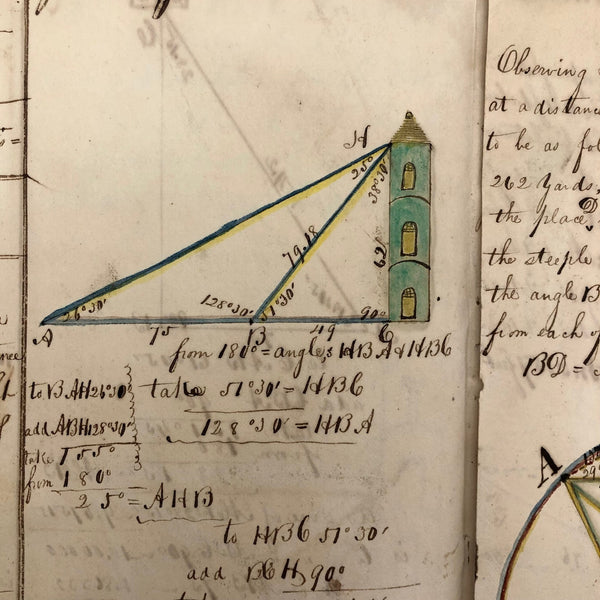 H
25°
38°30'
79.18
62
26°30'
128°30'
51°30'
90°
A 75 B 49 C
from 180° = angles HBA & HBC
to BAH 26°30'
add ABH 128°30'
take 155°
from 180°
25° = AHB
take 51°30' = HBC
128°30' = HBA
to HBC 51°30'
add BCH 90°
Observing
at a distanc
to be as fol
262 yards,
the place D
the steeple
the angle B
from each of
BD =
A